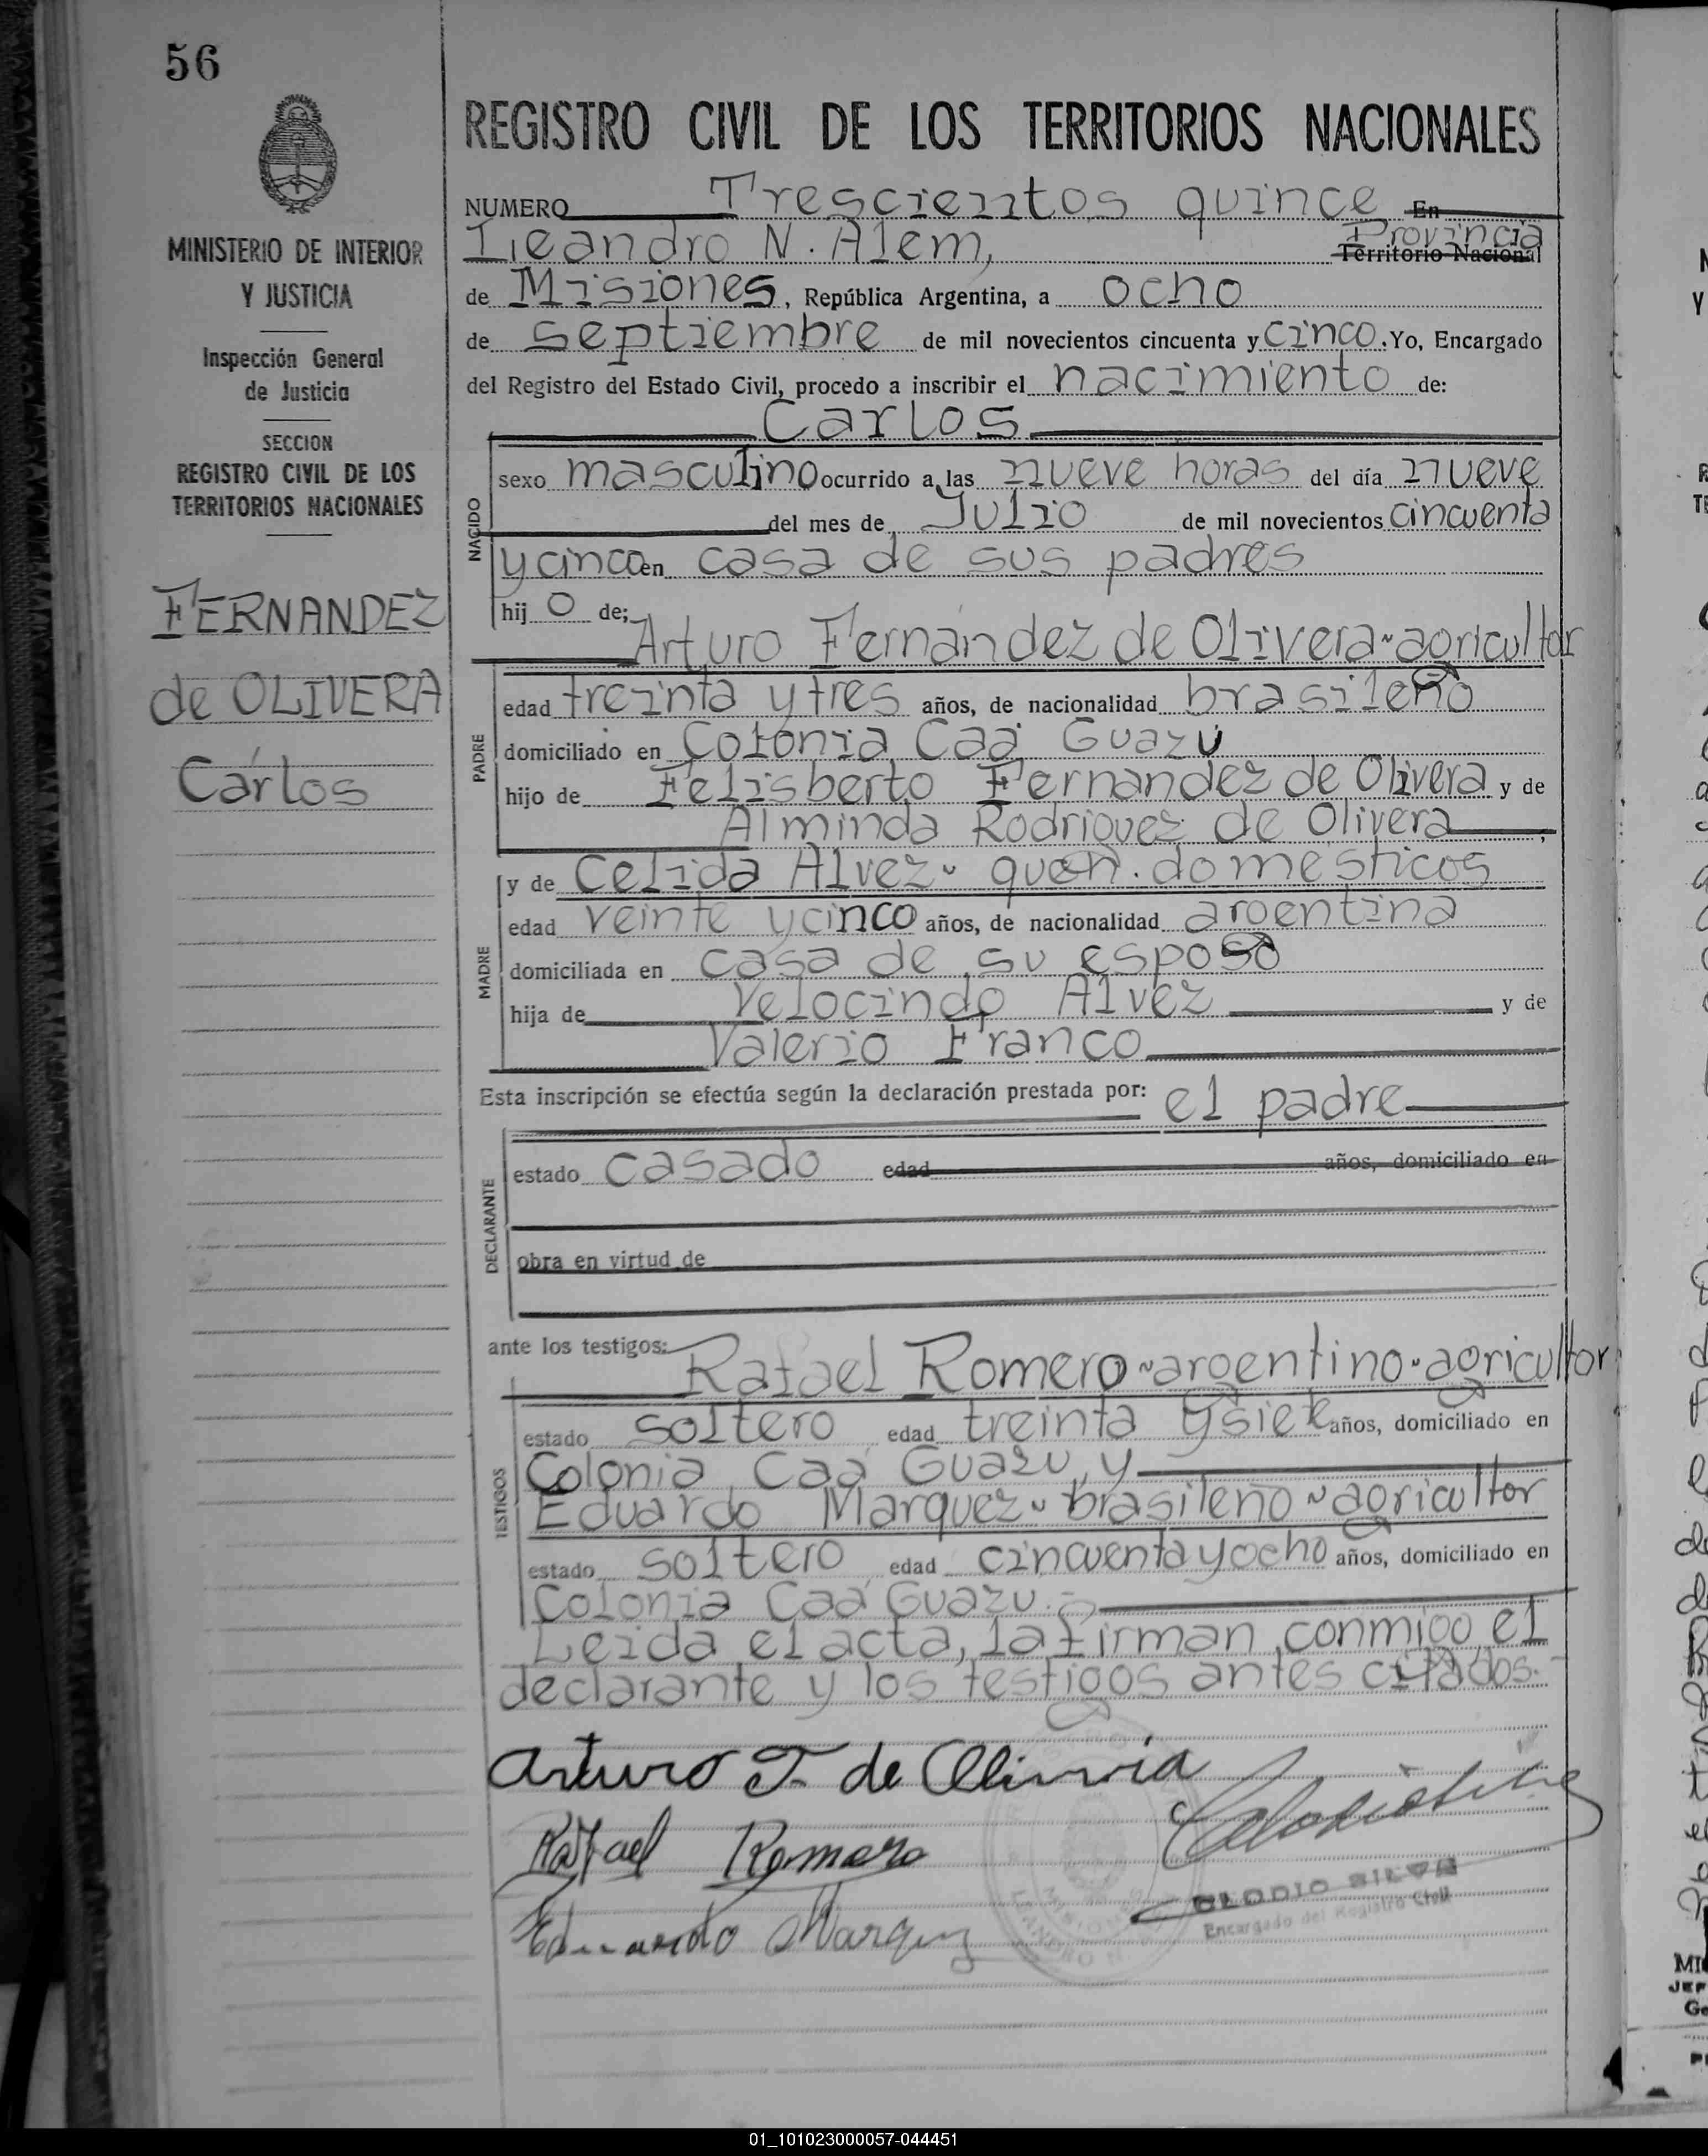 56
MINISTERIO DE INTERIOR
Y JUSTICIA
Inspección General
de Justicia
SECCION
REGISTRO CIVIL DE LOS
TERRITORIOS NACIONALES
FERNANDEZ
de OLIVERA
Cárlos
REGISTRO CIVIL DE LOS TERRITORIOS NACIONALES
NUMERO Trescientos quince En
Leandro N. Alem, Provincia
Territorio Nacional
de Misiones, República Argentina, a ocho
de septiembre de mil novecientos cincuenta y cinco. Yo, Encargado
del Registro del Estado Civil, procedo a inscribir el nacimiento de:
Carlos
NACIDO
sexo masculino ocurrido a las nueve horas del día nueve
del mes de Julio de mil novecientos cincuenta
y cinco en casa de sus padres
hij o de;
Arturo Fernandez de Olivera~agricultor
PADRE
edad treinta y tres años, de nacionalidad brasileño
domiciliado en Colonia Caá Guazú
hijo de Felisberto Fernandez de Olivera y de
Alminda Rodriguez de Olivera
y de Celida Alvez~ queh. domesticos
MADRE
edad veinte y cinco años, de nacionalidad argentina
domiciliada en casa de su esposo
hija de Velocindo Alvez y de
Valerio Franco
Esta inscripción se efectúa según la declaración prestada por: el padre
DECLARANTE
estado casado edad años, domiciliado en
obra en virtud de
ante los testigos:
Rafael Romero~argentino~agricultor
TESTIGOS
estado soltero edad treinta y siete años, domiciliado en
Colonia Caá Guazu, y
Eduardo Marquez~brasileño~agricultor
estado soltero edad cincuenta y ocho años, domiciliado en
Colonia Caá Guazu.=
Leida el acta, la firman conmigo el
declarante y los testigos antes citados.-
Arturo F. de Olivera
Rafael Romero
Eduardo Marquez
CLODIO SILVA
Encargado del Registro Civil
01_101023000057-044451